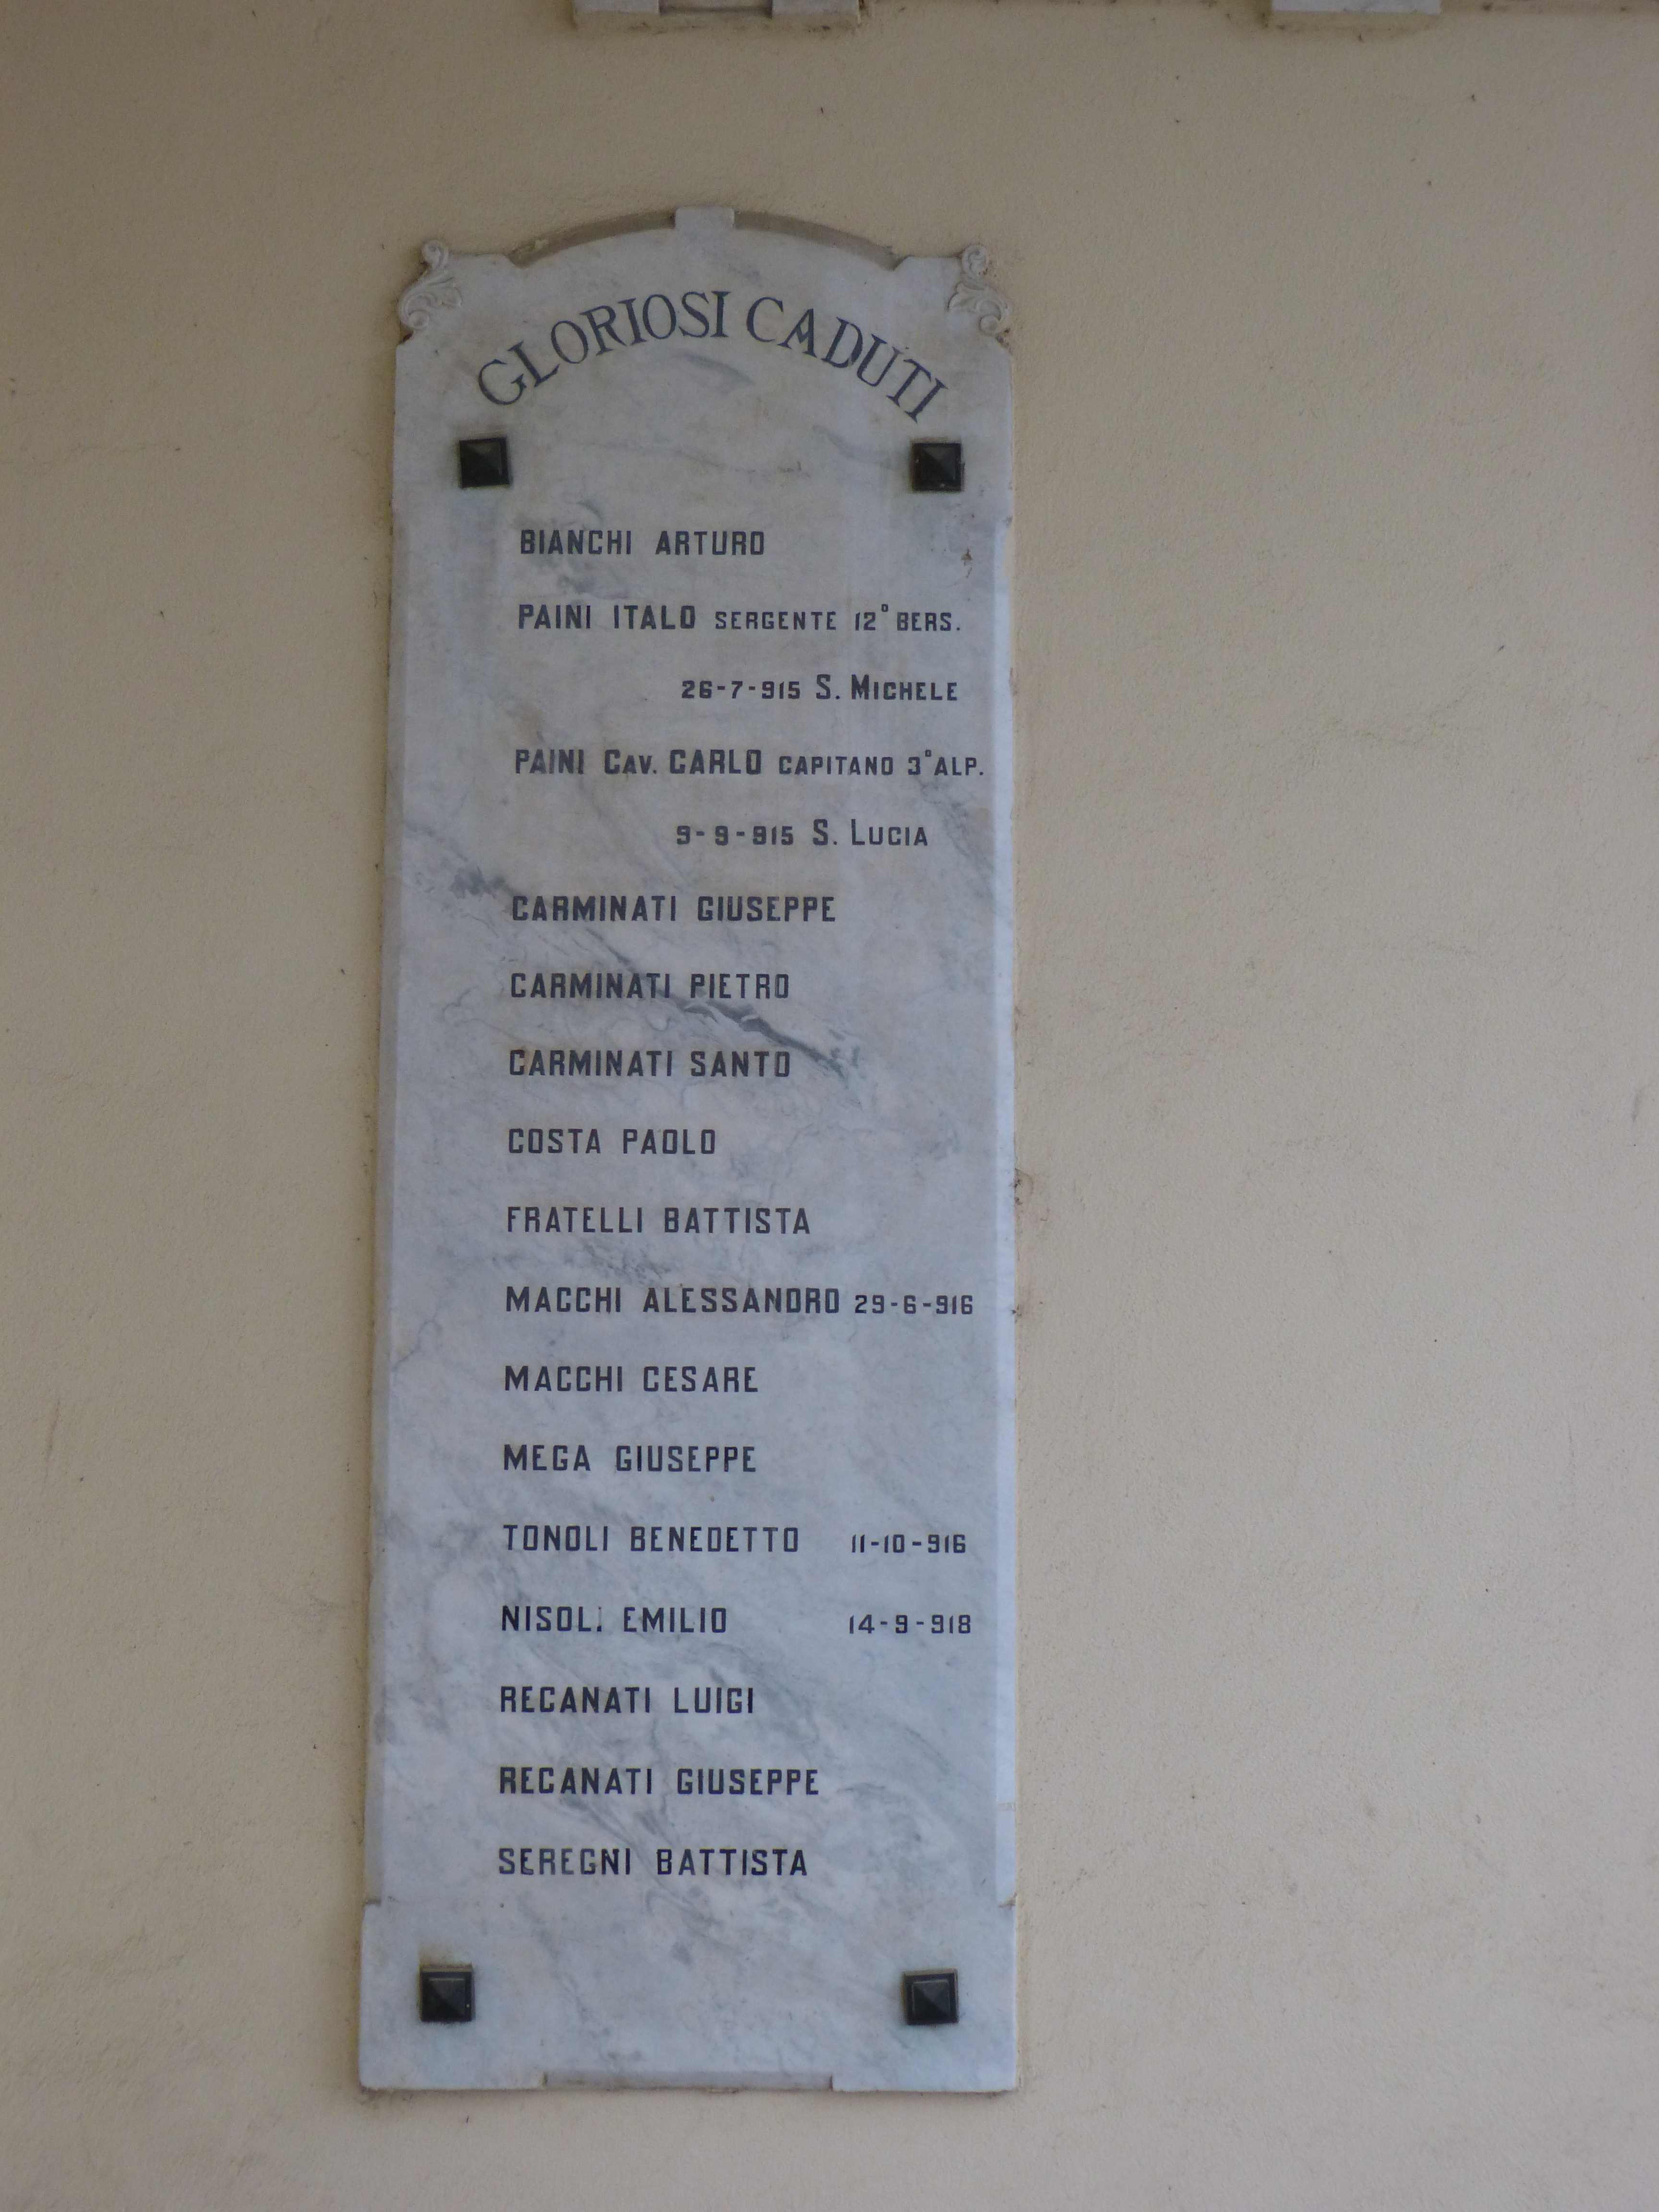 GLORIOSI CADUTI
BIANCHI ARTURO
PAINI ITALO SERGENTE 12° BERS.
26-7-915 S. MICHELE
PAINI CAV. CARLO CAPITANO 3° ALP.
9-9-915 S. LUCIA
CARMINATI GIUSEPPE
CARMINATI PIETRO
CARMINATI SANTO
COSTA PAOLO
FRATELLI BATTISTA
MACCHI ALESSANDRO 29-6-916
MACCHI CESARE
MEGA GIUSEPPE
TONOLI BENEDETTO 11-10-916
NISOLI EMILIO 14-9-918
RECANATI LUIGI
RECANATI GIUSEPPE
SEREGNI BATTISTA